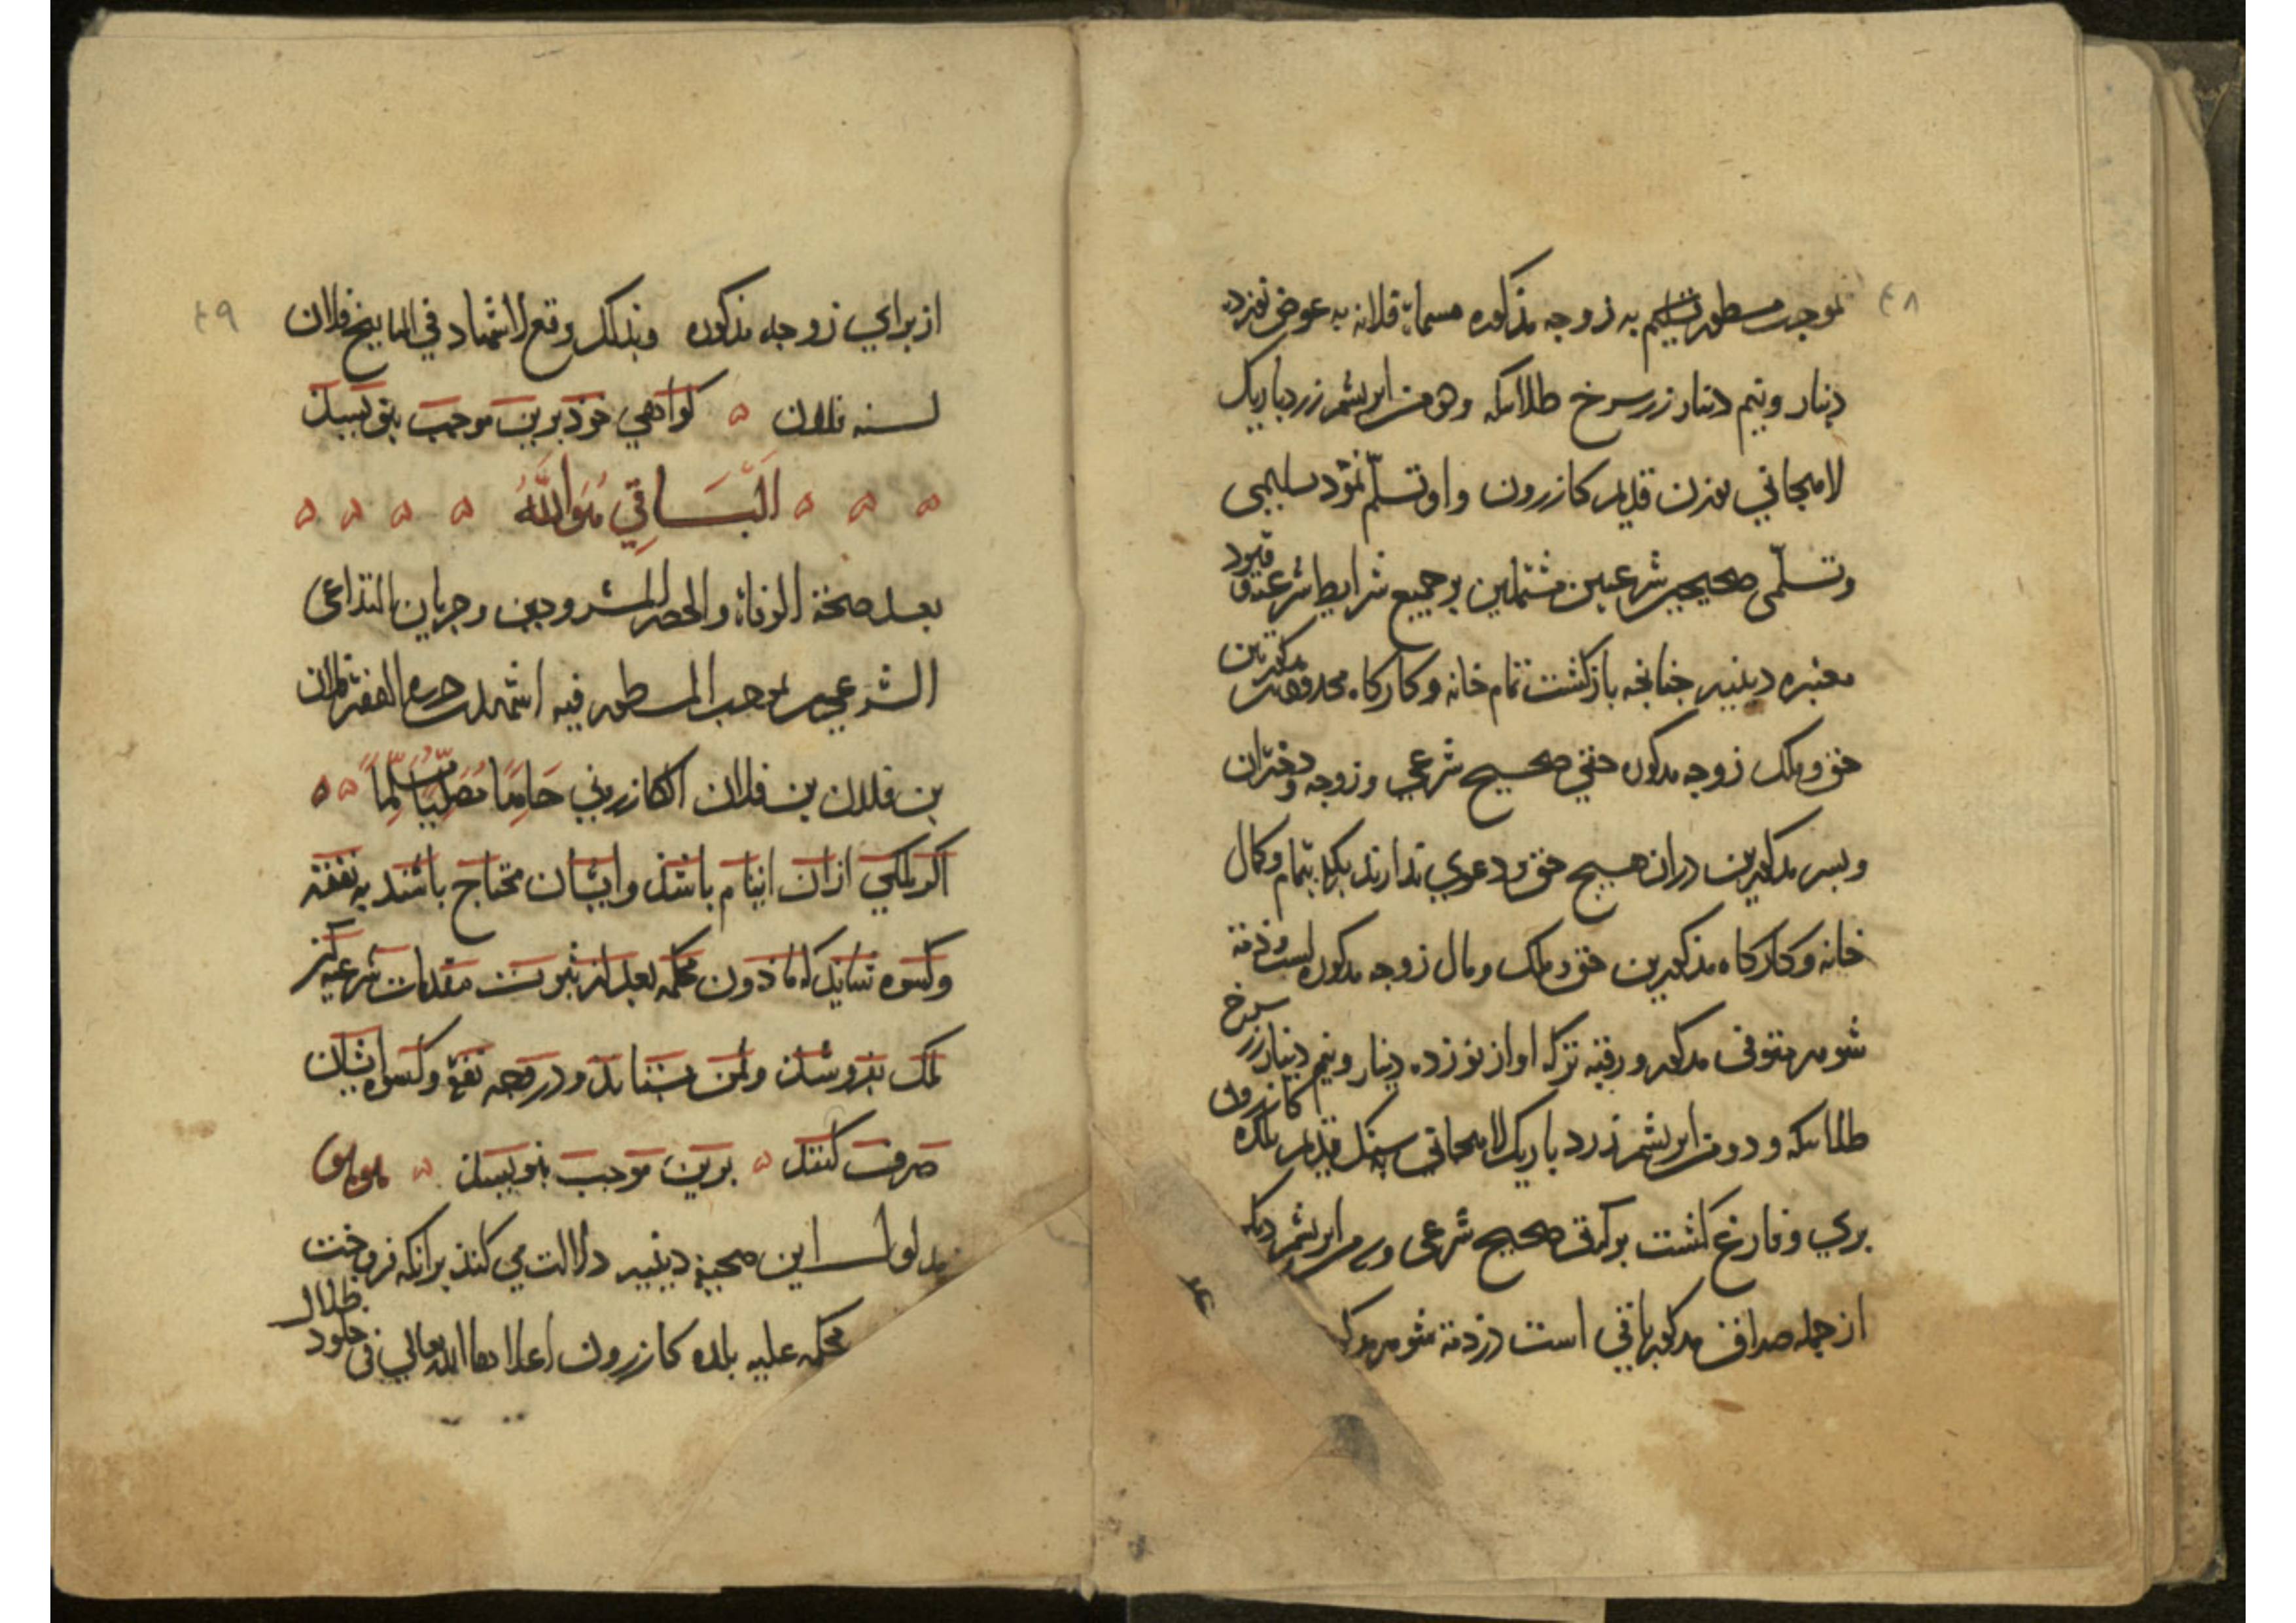 ۴۸
بموجب مسطور تسلیم به زوجه مذکوره مسماة فلانه به عوض نوزده
دینار و نیم دینار زر سرخ طلا سکه و دو من ابریشم زرد باریک
لاهجانی بوزن قدیم کازرون و او تسلّم نمود تسلیمی
و تسلّمی صحیحین شرعیین مشتملین بر جمیع شرایط شرعیه و قیود
معتبره دینیه چنانچه بازگشت تمام خانه و کارگاه محدودین مذکورین
حق و ملک زوجه مذکوره حقی صحیح شرعی و زوجه و دختران
و پسر مذکورین در ان هیچ حق و دعوی ندارند بلکه تمام و کمال
خانه و کارگاه مذکورین حق و ملک و مال زوجه مذکوره است و ذمه
شوهر متوفی مذکور و رقبه ترکه او از نوزده دینار و نیم دینار زر سرخ
طلا سکه و دو من ابریشم زرد باریک لاهجانی بسنگ قدیم بلده کازرون
بری و فارغ گشت براءتی صحیح شرعی و من ابریشم دیگر
از جمله صداق مذکور باقی است در ذمه شوهر مذکور
۴۹
از برای زوجه مذکوره و بذلک وقع الاشهاد فی التاریخ فلان
لسنه فلان کواهی خود برین موجب بنویسند
اَلْبَاقِي هُوَ اللّٰهُ
بعد صحة الوفاة والحصر المشروحین و جریان التداعی
الشرعی بموجب المسطور فیه اشهدت حرره الفقیر فلان
بن فلان بن فلان الکازرونی حَامِدًا مُصَلِّیًا مُسَلِّمًا
اکر ملکی از ان ایتام باشد و ایشان محتاج باشند به نفقه
و کسوه شاید که ماذون محکمه بعد از ثبوت مقدمات شرعیه
ملک بفروشد و ثمن بستاند و در وجه نفقه و کسوه ایشان
صرف کنند برین موجب بنویسند
مدلول این صحیفه دینیه دلالت می کند بر آنکه فروخت
محکمه علیه بلده کازرون اعلاها الله تعالی فی ظلال خلود